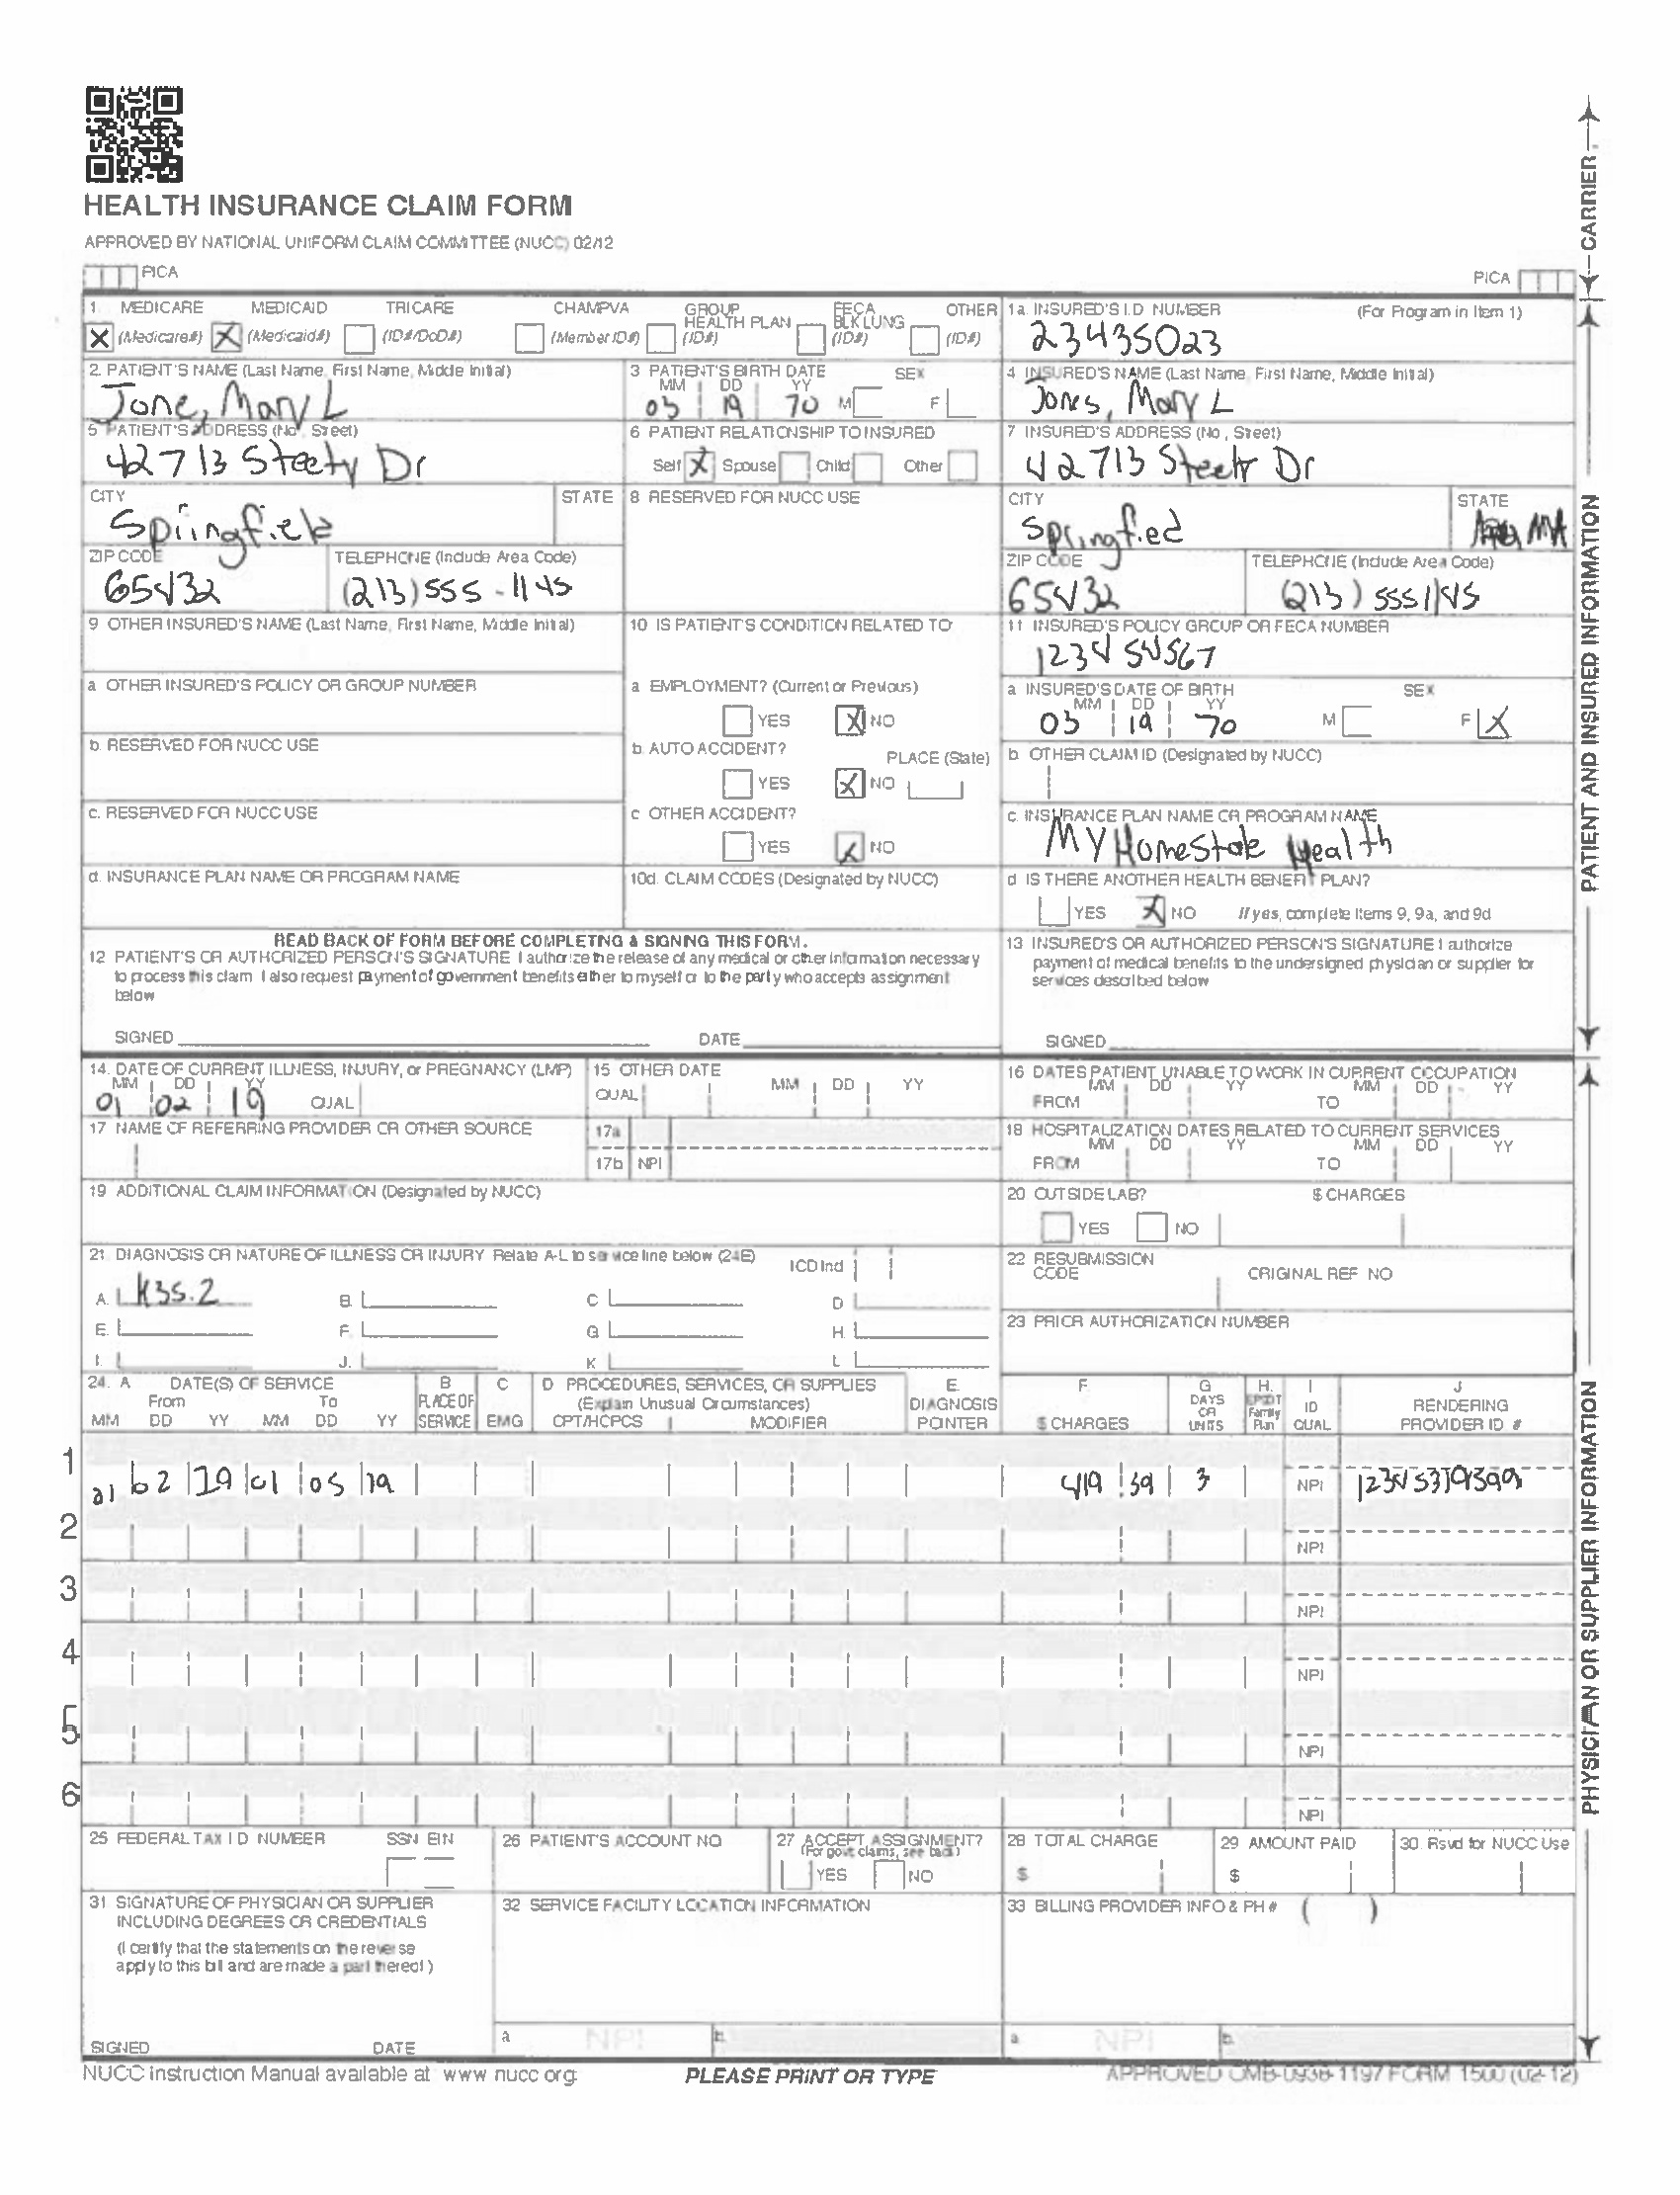 HEALTH INSURANCE CLAIM FORM
APPROVED BY NATIONAL UNIFORM CLAIM COMMITTEE (NUCC) 02/12
PICA
PICA
CARRIER
1. MEDICARE MEDICAID TRICARE CHAMPVA GROUP HEALTH PLAN FECA BLK LUNG OTHER
X (Medicare#) X (Medicaid#) (ID#/DoD#) (Member ID#) (ID#) (ID#) (ID#)
1a. INSURED'S I.D. NUMBER (For Program in Item 1)
23435023
2. PATIENT'S NAME (Last Name, First Name, Middle Initial)
Jone, Mary L
3 PATIENT'S BIRTH DATE SEX
MM DD YY
03 19 70 M F
4 INSURED'S NAME (Last Name, First Name, Middle Initial)
Jones, Mary L
5 PATIENT'S ADDRESS (No, Street)
42713 Steety Dr
6 PATIENT RELATIONSHIP TO INSURED
Self X Spouse Child Other
7 INSURED'S ADDRESS (No, Street)
42713 Dr
CITY STATE
Springfield
8 RESERVED FOR NUCC USE
CITY STATE
Springfied MA
ZIP CODE TELEPHONE (Include Area Code)
65432 (213) 555-1145
ZIP CODE TELEPHONE (Include Area Code)
65432 (213) 5551145
9 OTHER INSURED'S NAME (Last Name, First Name, Middle Initial)
10 IS PATIENT'S CONDITION RELATED TO
11 INSURED'S POLICY GROUP OR FECA NUMBER
1234 54567
a OTHER INSURED'S POLICY OR GROUP NUMBER
a EMPLOYMENT? (Current or Previous)
YES X NO
a INSURED'S DATE OF BIRTH SEX
MM DD YY
03 19 70 M F X
b. RESERVED FOR NUCC USE
b. AUTO ACCIDENT? PLACE (State)
YES X NO
b OTHER CLAIM ID (Designated by NUCC)
c. RESERVED FOR NUCC USE
c OTHER ACCIDENT?
YES X NO
c. INSURANCE PLAN NAME OR PROGRAM NAME
My HomeState Health
d. INSURANCE PLAN NAME OR PROGRAM NAME
10d. CLAIM CODES (Designated by NUCC)
d IS THERE ANOTHER HEALTH BENEFIT PLAN?
YES X NO If yes, complete items 9, 9a, and 9d
READ BACK OF FORM BEFORE COMPLETING & SIGNING THIS FORM.
12 PATIENT'S OR AUTHORIZED PERSON'S SIGNATURE I authorize the release of any medical or other information necessary
to process this claim I also request payment of government benefits either to myself or to the party who accepts assignment
below
SIGNED DATE
13 INSURED'S OR AUTHORIZED PERSON'S SIGNATURE I authorize
payment of medical benefits to the undersigned physician or supplier for
services described below
SIGNED
PATIENT AND INSURED INFORMATION
14. DATE OF CURRENT ILLNESS, INJURY, or PREGNANCY (LMP)
MM DD YY
01 02 19 QUAL
15 OTHER DATE
QUAL MM DD YY
16 DATES PATIENT UNABLE TO WORK IN CURRENT OCCUPATION
MM DD YY MM DD YY
FROM TO
17 NAME OF REFERRING PROVIDER OR OTHER SOURCE
17a
17b NPI
18 HOSPITALIZATION DATES RELATED TO CURRENT SERVICES
MM DD YY MM DD YY
FROM TO
19 ADDITIONAL CLAIM INFORMATION (Designated by NUCC)
20 OUTSIDE LAB? $ CHARGES
YES NO
21. DIAGNOSIS OR NATURE OF ILLNESS OR INJURY Relate A-L to service line below (24E) ICD Ind
A. K35.2 B. C D
E. F. G H.
I. J. K L
22 RESUBMISSION
CODE ORIGINAL REF NO
23 PRIOR AUTHORIZATION NUMBER
24. A DATE(S) OF SERVICE B C D PROCEDURES, SERVICES, OR SUPPLIES E. F G H. I J
From To PLACE OF (Explain Unusual Circumstances) DIAGNOSIS DAYS OR EPSDT Family ID RENDERING
MM DD YY MM DD YY SERVICE EMG CPT/HCPCS MODIFIER POINTER $ CHARGES UNITS Plan QUAL PROVIDER ID #
1 01 02 19 01 05 19 419 39 3 NPI
2 NPI
3 NPI
4 NPI
5 NPI
6 NPI
25 FEDERAL TAX I D NUMBER SSN EIN
26 PATIENT'S ACCOUNT NO
27 ACCEPT ASSIGNMENT?
(For govt claims, see back)
YES NO
28 TOTAL CHARGE
$
29 AMOUNT PAID
$
30. Rsvd for NUCC Use
31 SIGNATURE OF PHYSICIAN OR SUPPLIER
INCLUDING DEGREES OR CREDENTIALS
(I certify that the statements on the reverse
apply to this bill and are made a part thereof)
SIGNED DATE
32 SERVICE FACILITY LOCATION INFORMATION
a NPI b.
33 BILLING PROVIDER INFO & PH # ( )
a NPI b.
PHYSICIAN OR SUPPLIER INFORMATION
NUCC Instruction Manual available at www nucc org
PLEASE PRINT OR TYPE
APPROVED OMB-0938-1197 FORM 1500 (02-12)